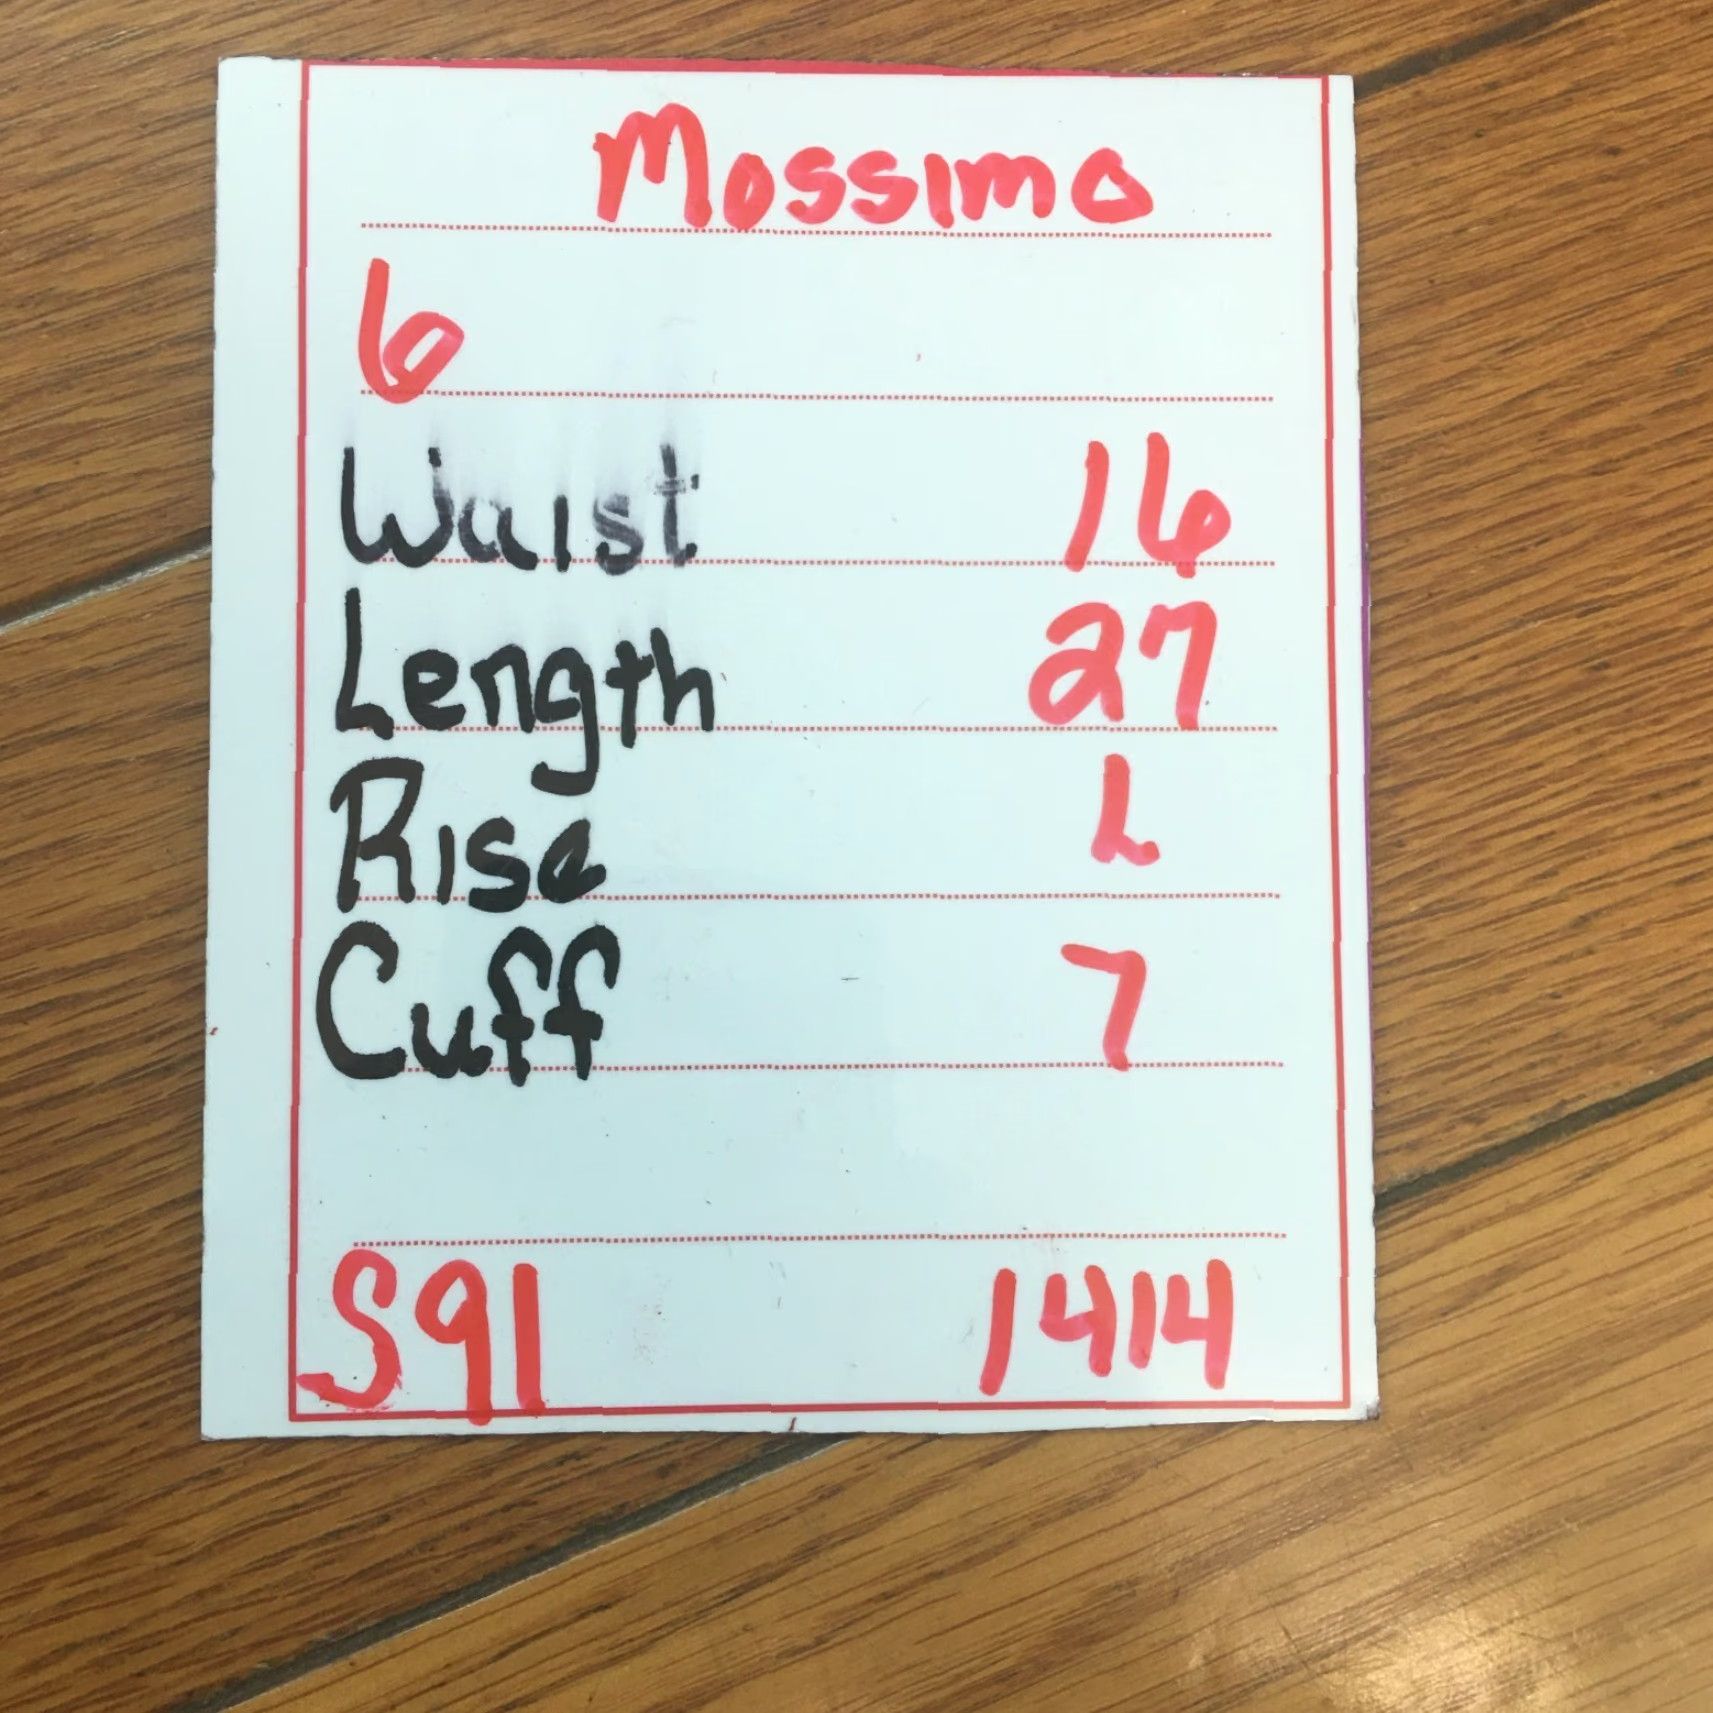 Mossimo
6
Waist 16
Length 27
Rise L
Cuff 7
S91 1414